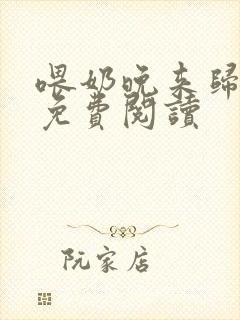 喂奶晚来歸
免費閱讀
阮家店